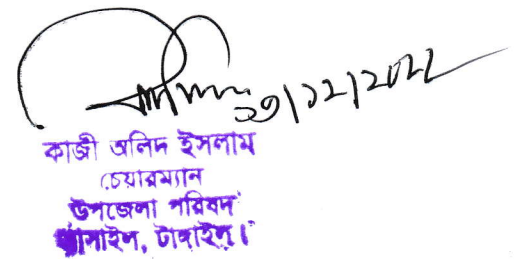 ২৩/১২/২০২২
কাজী অলিদ ইসলাম
চেয়ারম্যান
উপজেলা পরিষদ
বাসাইল, টাঙ্গাইল।